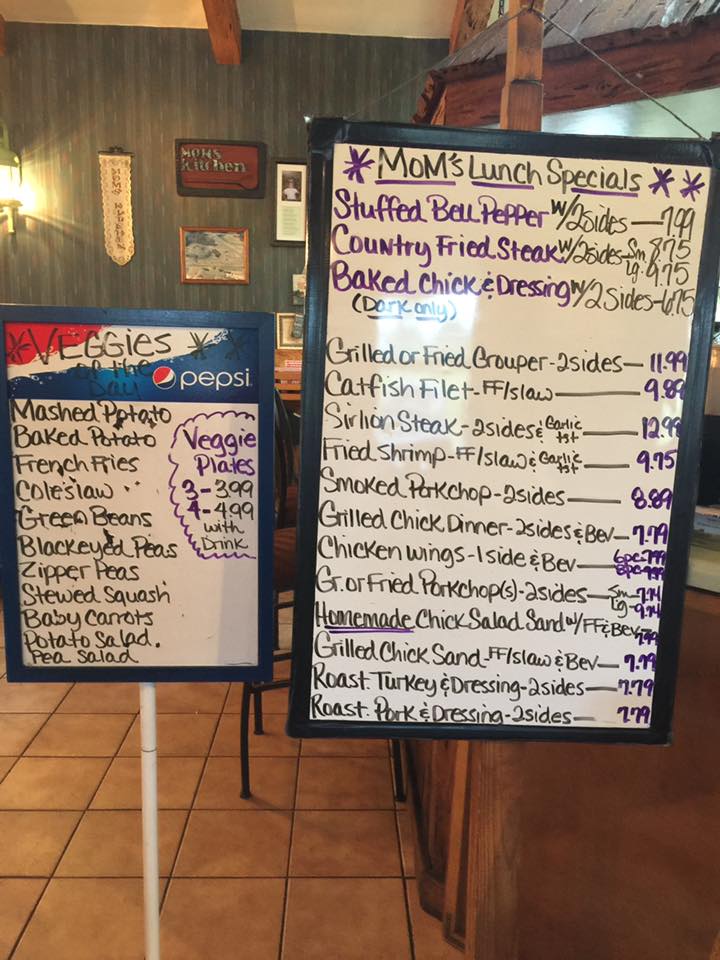 MOM'S Kitchen
MOM'S KITCHEN
* VEGGIES * *
of the
Day
pepsi
Mashed Potato
Baked Potato
French Fries
Coleslaw
Green Beans
Blackeyed Peas
Zipper Peas
Stewed Squash
Baby Carrots
Potato Salad.
Pea Salad
Veggie
Plates
3-3.99
4-4.99
with
Drink
* MOM'S Lunch Specials * *
Stuffed Bell Pepper w/2sides — 7.99
Country Fried Steak w/2sides - Sm 8.75
Lg. 9.75
Baked Chick & Dressing w/2 Sides - 6.75
(Dark only)
Grilled or Fried Grouper - 2sides — 11.99
Catfish Filet - FF/slaw — 9.89
Sirlion Steak - 2sides & Garlic tst — 12.99
Fried Shrimp - FF/slaw & Garlic tst — 9.75
Smoked Porkchop - 2sides — 8.89
Grilled Chick Dinner - 2sides & Bev — 7.79
Chicken Wings - 1 side & Bev — 6pc 7.99
8pc
Gr. or Fried Porkchop(s) - 2sides — Sm - 7.74
Lg - 9.74
Homemade Chick Salad Sand w/FF & Bev
Grilled Chick Sand - FF/slaw & Bev — 7.79
Roast. Turkey & Dressing - 2sides — 7.79
Roast. Pork & Dressing - 2sides — 7.79